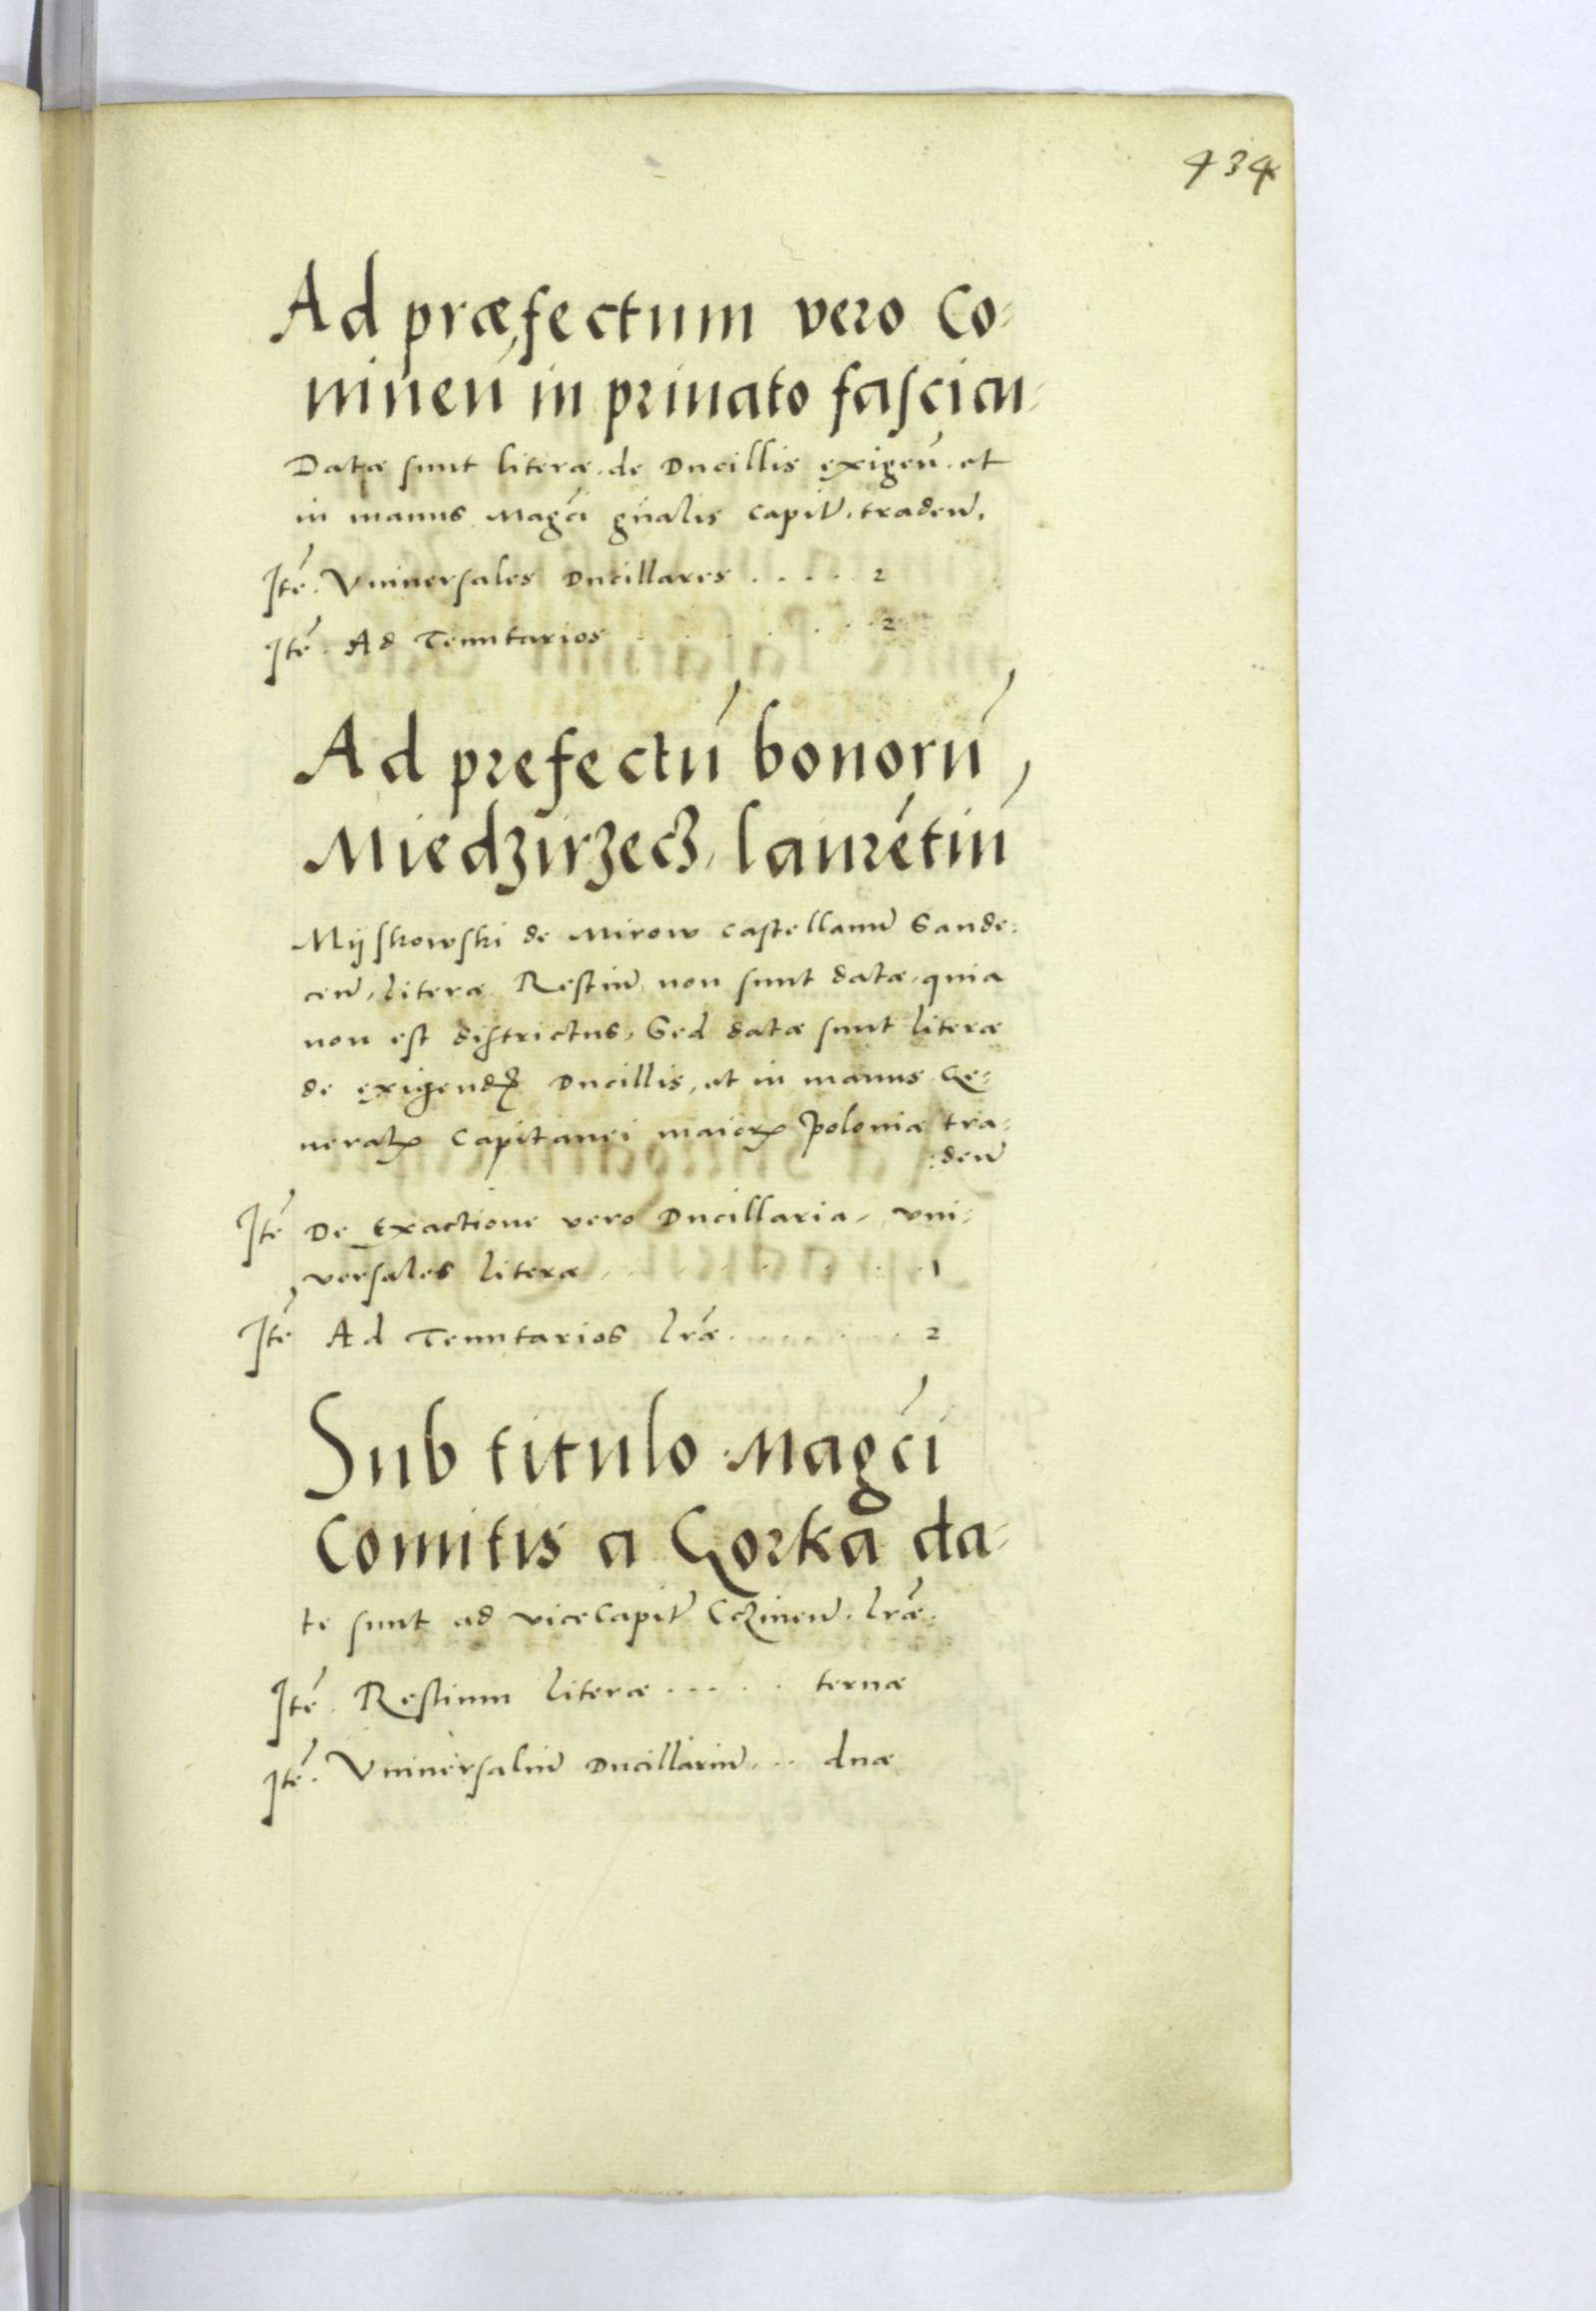 434
Ad præfectum vero Co-
ninen̄ in priuato fascicu-
Datæ sunt literæ de Ducillis exigen̄. et
in manus Magci gn̄alis Capit̄. traden̄.
Itē. Vniuersales Ducillares ..... 2
Itē. Ad Tenutarios ..... 2
Ad prefectū bonorū
Miedzirzecz, laurētiū
Mijskowski de Mirow Castellanū Sande:
cen̄, literæ Restiū non sunt datæ, quia
non est districtus, Sed datæ sunt literæ
de exigendꝭ Ducillis, et in manus Ge:
neralꝭ Capitanei maiorꝭ Poloniæ tra:
:den̄
Itē De Exactione vero Ducillaria, vni:
versales literæ ..... 1
Itē Ad Tenutarios lr̄æ ..... 2
Sub titulo Magci
Comitis a Gorka da-
te sunt ad viceCapit̄ Czinen̄. lr̄æ.
Itē. Restium literæ ..... ternæ
Itē. Vniuersaliū Ducillariū ... duæ